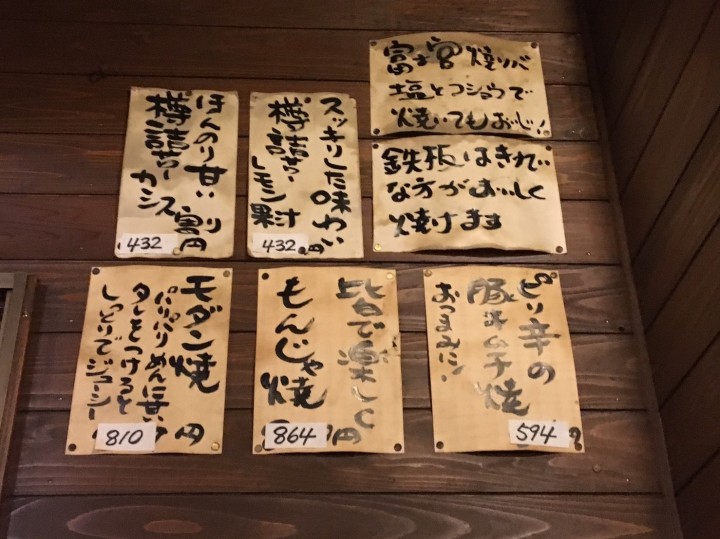 富士宮焼ソバ
塩とコショウで
焼いてもおいし!
鉄板はきれい
な方がおいしく
焼けます
スッキリした味わい
樽詰サワー
レモン果汁
432
円
ほんのり甘い
樽詰サワー
カシス
432
円
ピリ辛の
豚キムチ焼
おつまみに!
594
円
皆で楽しく
もんじゃ焼
864
円
モダン焼
パリパリめんに甘い
タレをつけると
しっとりでジューシー
810
円